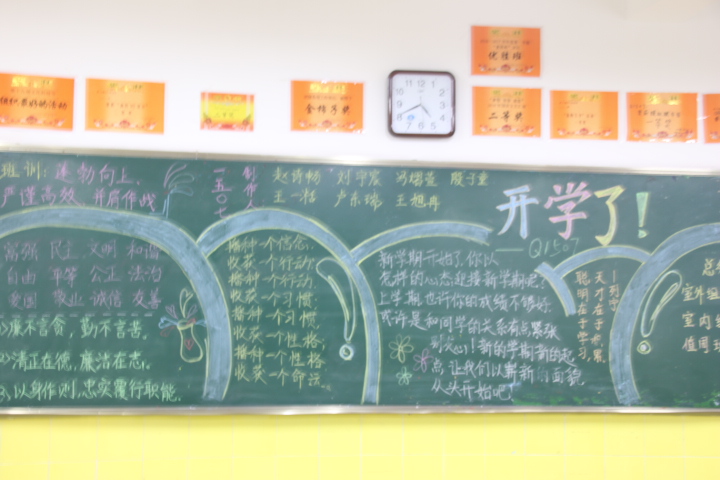 金榜写手奖
二等奖
班训：蓬勃向上、
严谨高效、并肩作战
一五〇七
创作人
赵诗畅 刘宇宸
王一 王旭冉
开学了！
Q1507
富强 民主 文明 和谐
自由 平等 公正 法治
爱国 敬业 诚信 友善
1)廉不言贪，勤不言苦。
2)清正在德，廉洁在志。
3)以身作则，忠实履行职能。
播种一个信念，
收获一个行动；
播种一个行动
收获一个习惯；
播种一个习惯
收获一个性格；
播种一个性格
收获一个命运。
新学期开始了，你以
怎样的心态迎接新学期呢？
上学期也许你的成绩不够好
或许是和同学的关系有点紧张
别灰心！新的学期新的起
点，让我们以崭新的面貌
从头开始吧
天才在于积累，
聪明在于学习。
室外
室内
值周